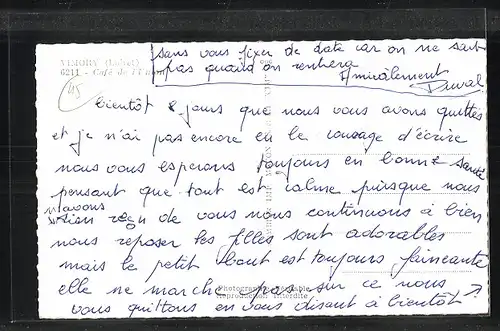 VIMORY (Loiret)
6211 - Café de l'Union
45
sans vous fixer de date car on ne sait
pas quand on rentrera
Amicalement
Duval
bientôt 8 jours que nous vous avons quittés
et je n'ai pas encore eu le courage d'écrire
nous vous esperons toujours en bonne santé
pensant que tout est calme puisque nous
n'avons
rien reçu de vous nous continuons à bien
nous reposer les filles sont adorables
mais le petit bout est toujours faineante
elle ne marche pas sur ce nous
Photographie Véritable
Reproduction Interdite
vous quittons en vous disant à bientôt